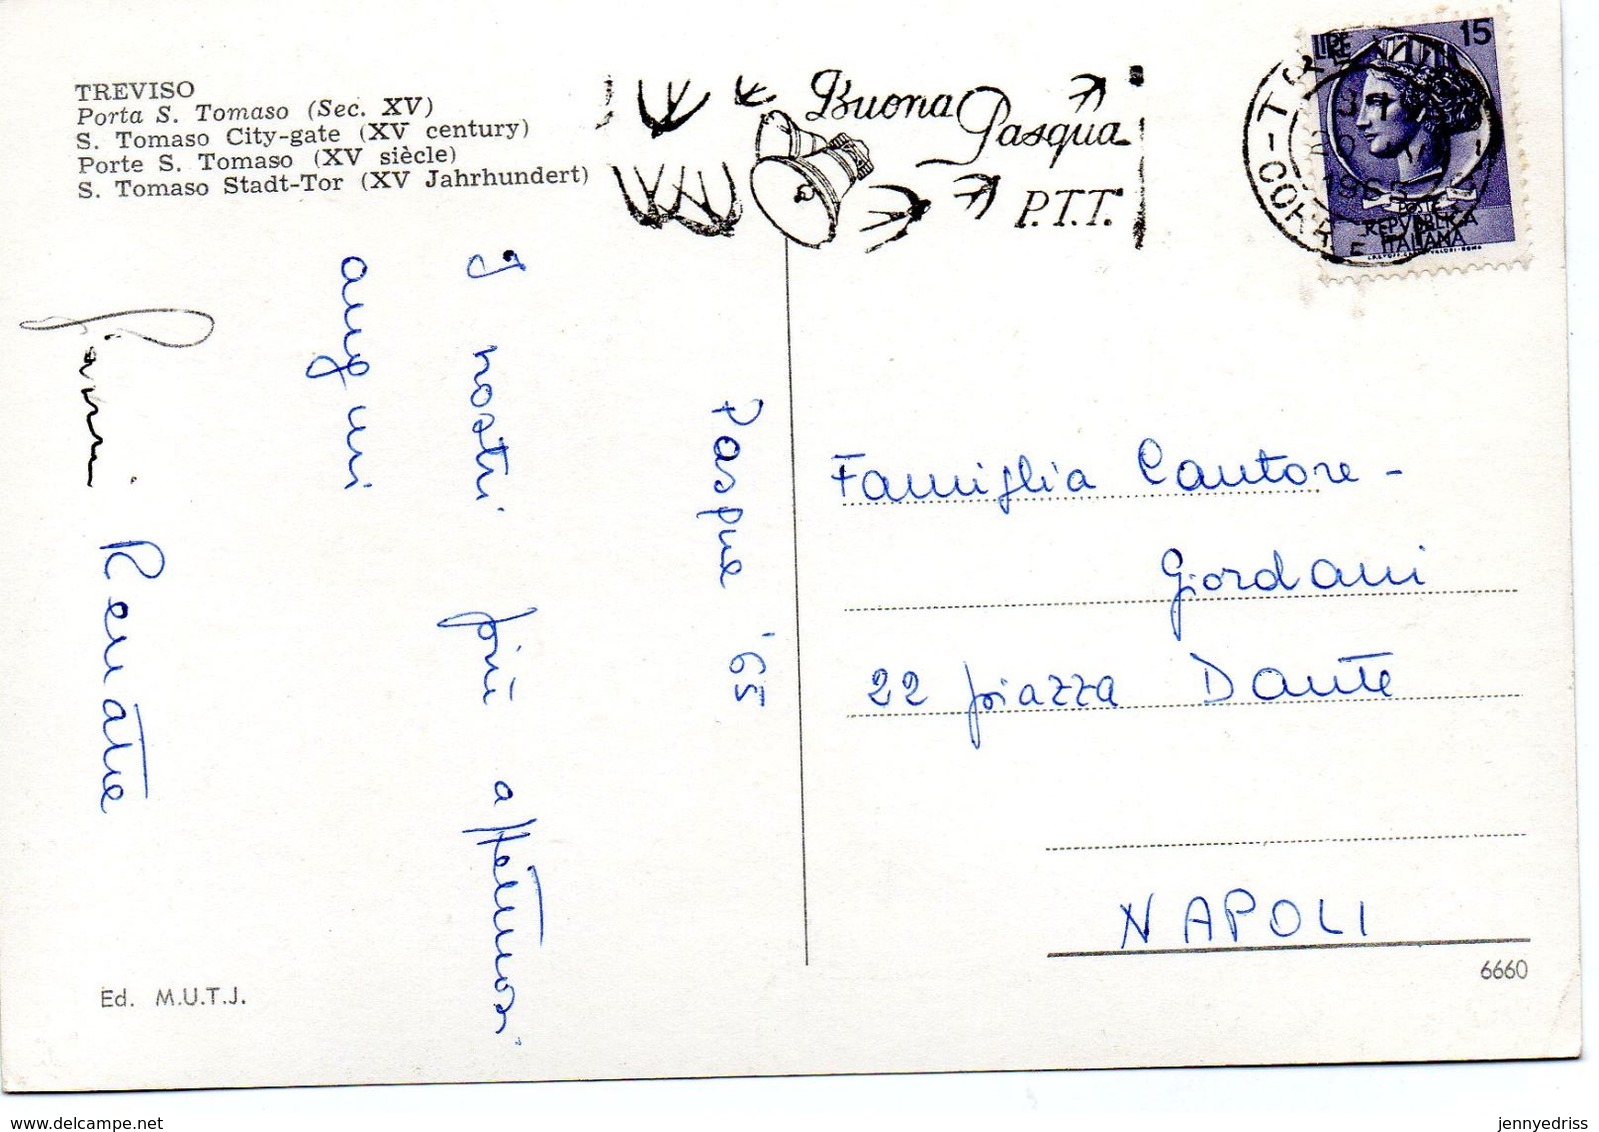 TREVISO
Porta S. Tomaso (Sec. XV)
S. Tomaso City-gate (XV century)
Porte S. Tomaso (XV siècle)
S. Tomaso Stadt-Tor (XV Jahrhundert)
Buona
Pasqua
P.T.T.
LIRE 15
1965
CORR
POSTE
REPVBBLICA
ITALIANA
Pasqua '65
I nostri più affettuosi
auguri
Gianni Renata
Famiglia Cantore -
Giordani
22 piazza Dante
NAPOLI
6660
Ed. M.U.T.J.
jennyedriss